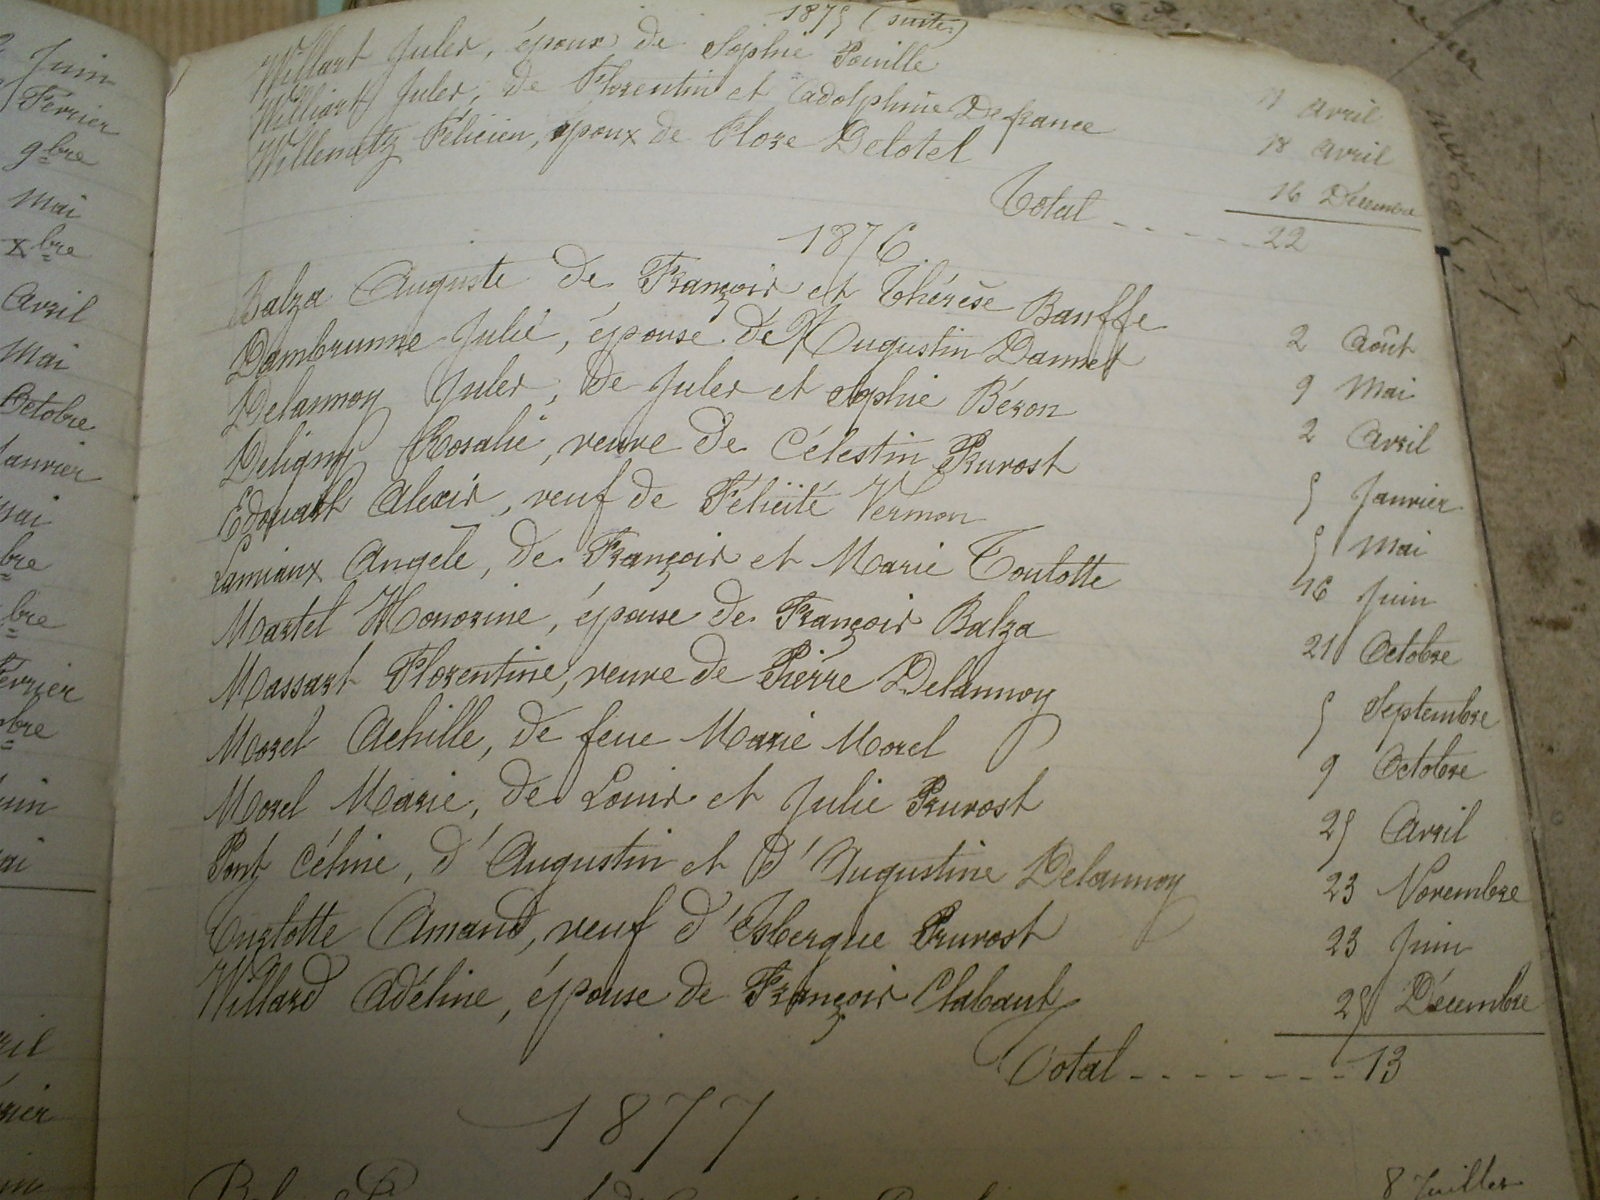 Juin
Février
9bre
Mai
Xbre
Avril
Mai
Octobre
Janvier
bre
bre
Février
bre
1875 (suite)
Willart Jules, époux de Sophie Pouille 11 Avril
Williart Jules, de Florentin et Adolphine Defrance 18 Avril
Willemetz Félicien, époux de Flore Delotel 16 Décembre
Total 22
1876
Balza Auguste de François et Thérèse Banffe 2 Août
Dambrunne Julie, épouse de Augustin Dannet 9 Mai
Delannoy Jules, de Jules et Sophie Béron 2 Avril
Deligny Rosalie, veuve de Célestin Pruvost 5 Janvier
Edouart Alexis, veuf de Félicité Vermon 5 Mai
Lamiaux Angèle, de François et Marie Toulotte 16 Juin
Martel Honorine, épouse de François Balza 21 Octobre
Massart Florentine, veuve de Pierre Delannoy 5 Septembre
Morel Achille, de feue Marie Morel 9 Octobre
Morel Marie, de Louis et Julie Pruvost 25 Avril
Pont Céline, d'Augustin et d'Augustine Delannoy 23 Novembre
Turlotte Amand, veuf d'Isbergue Pruvost 23 Juin
Willard Adéline, épouse de François Clabaut 25 Décembre
Total 13
1877
8 Juillet